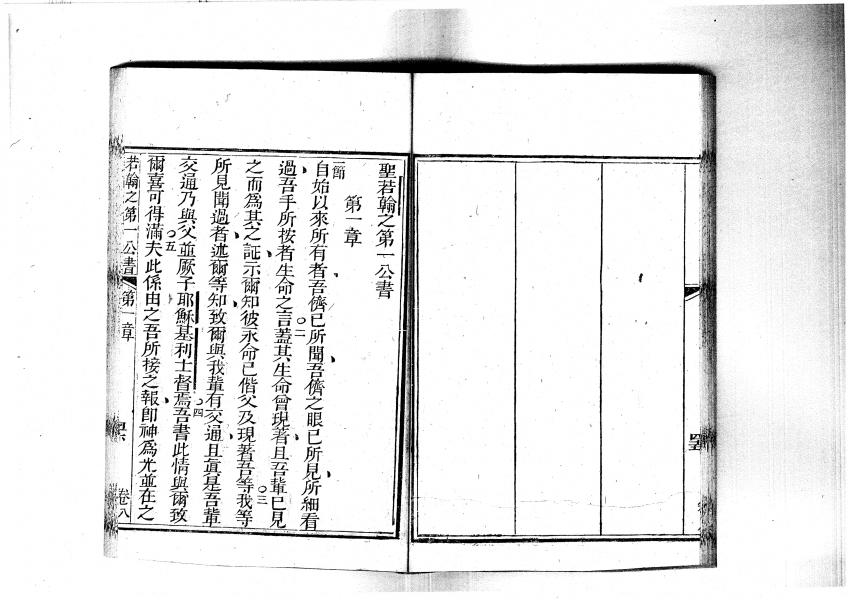 聖若翰之第一公書
第一章
一節
自始以來所有者吾儕已所聞吾儕之眼已所見所細看
過吾手所按者生命之言蓋其生命曾現著且吾輩已見
〇二
之而為其之証示爾知彼永命已偕父及現著吾等我等
〇三
所見聞過者述爾等知致爾與我輩有交通且眞是吾輩
交通乃與父並厥子耶穌基利士督焉吾書此情與爾致
〇四
爾喜可得滿夫此係由之吾所接之報即神為光並在之
〇五
若翰之第一公書
第一章
卷八